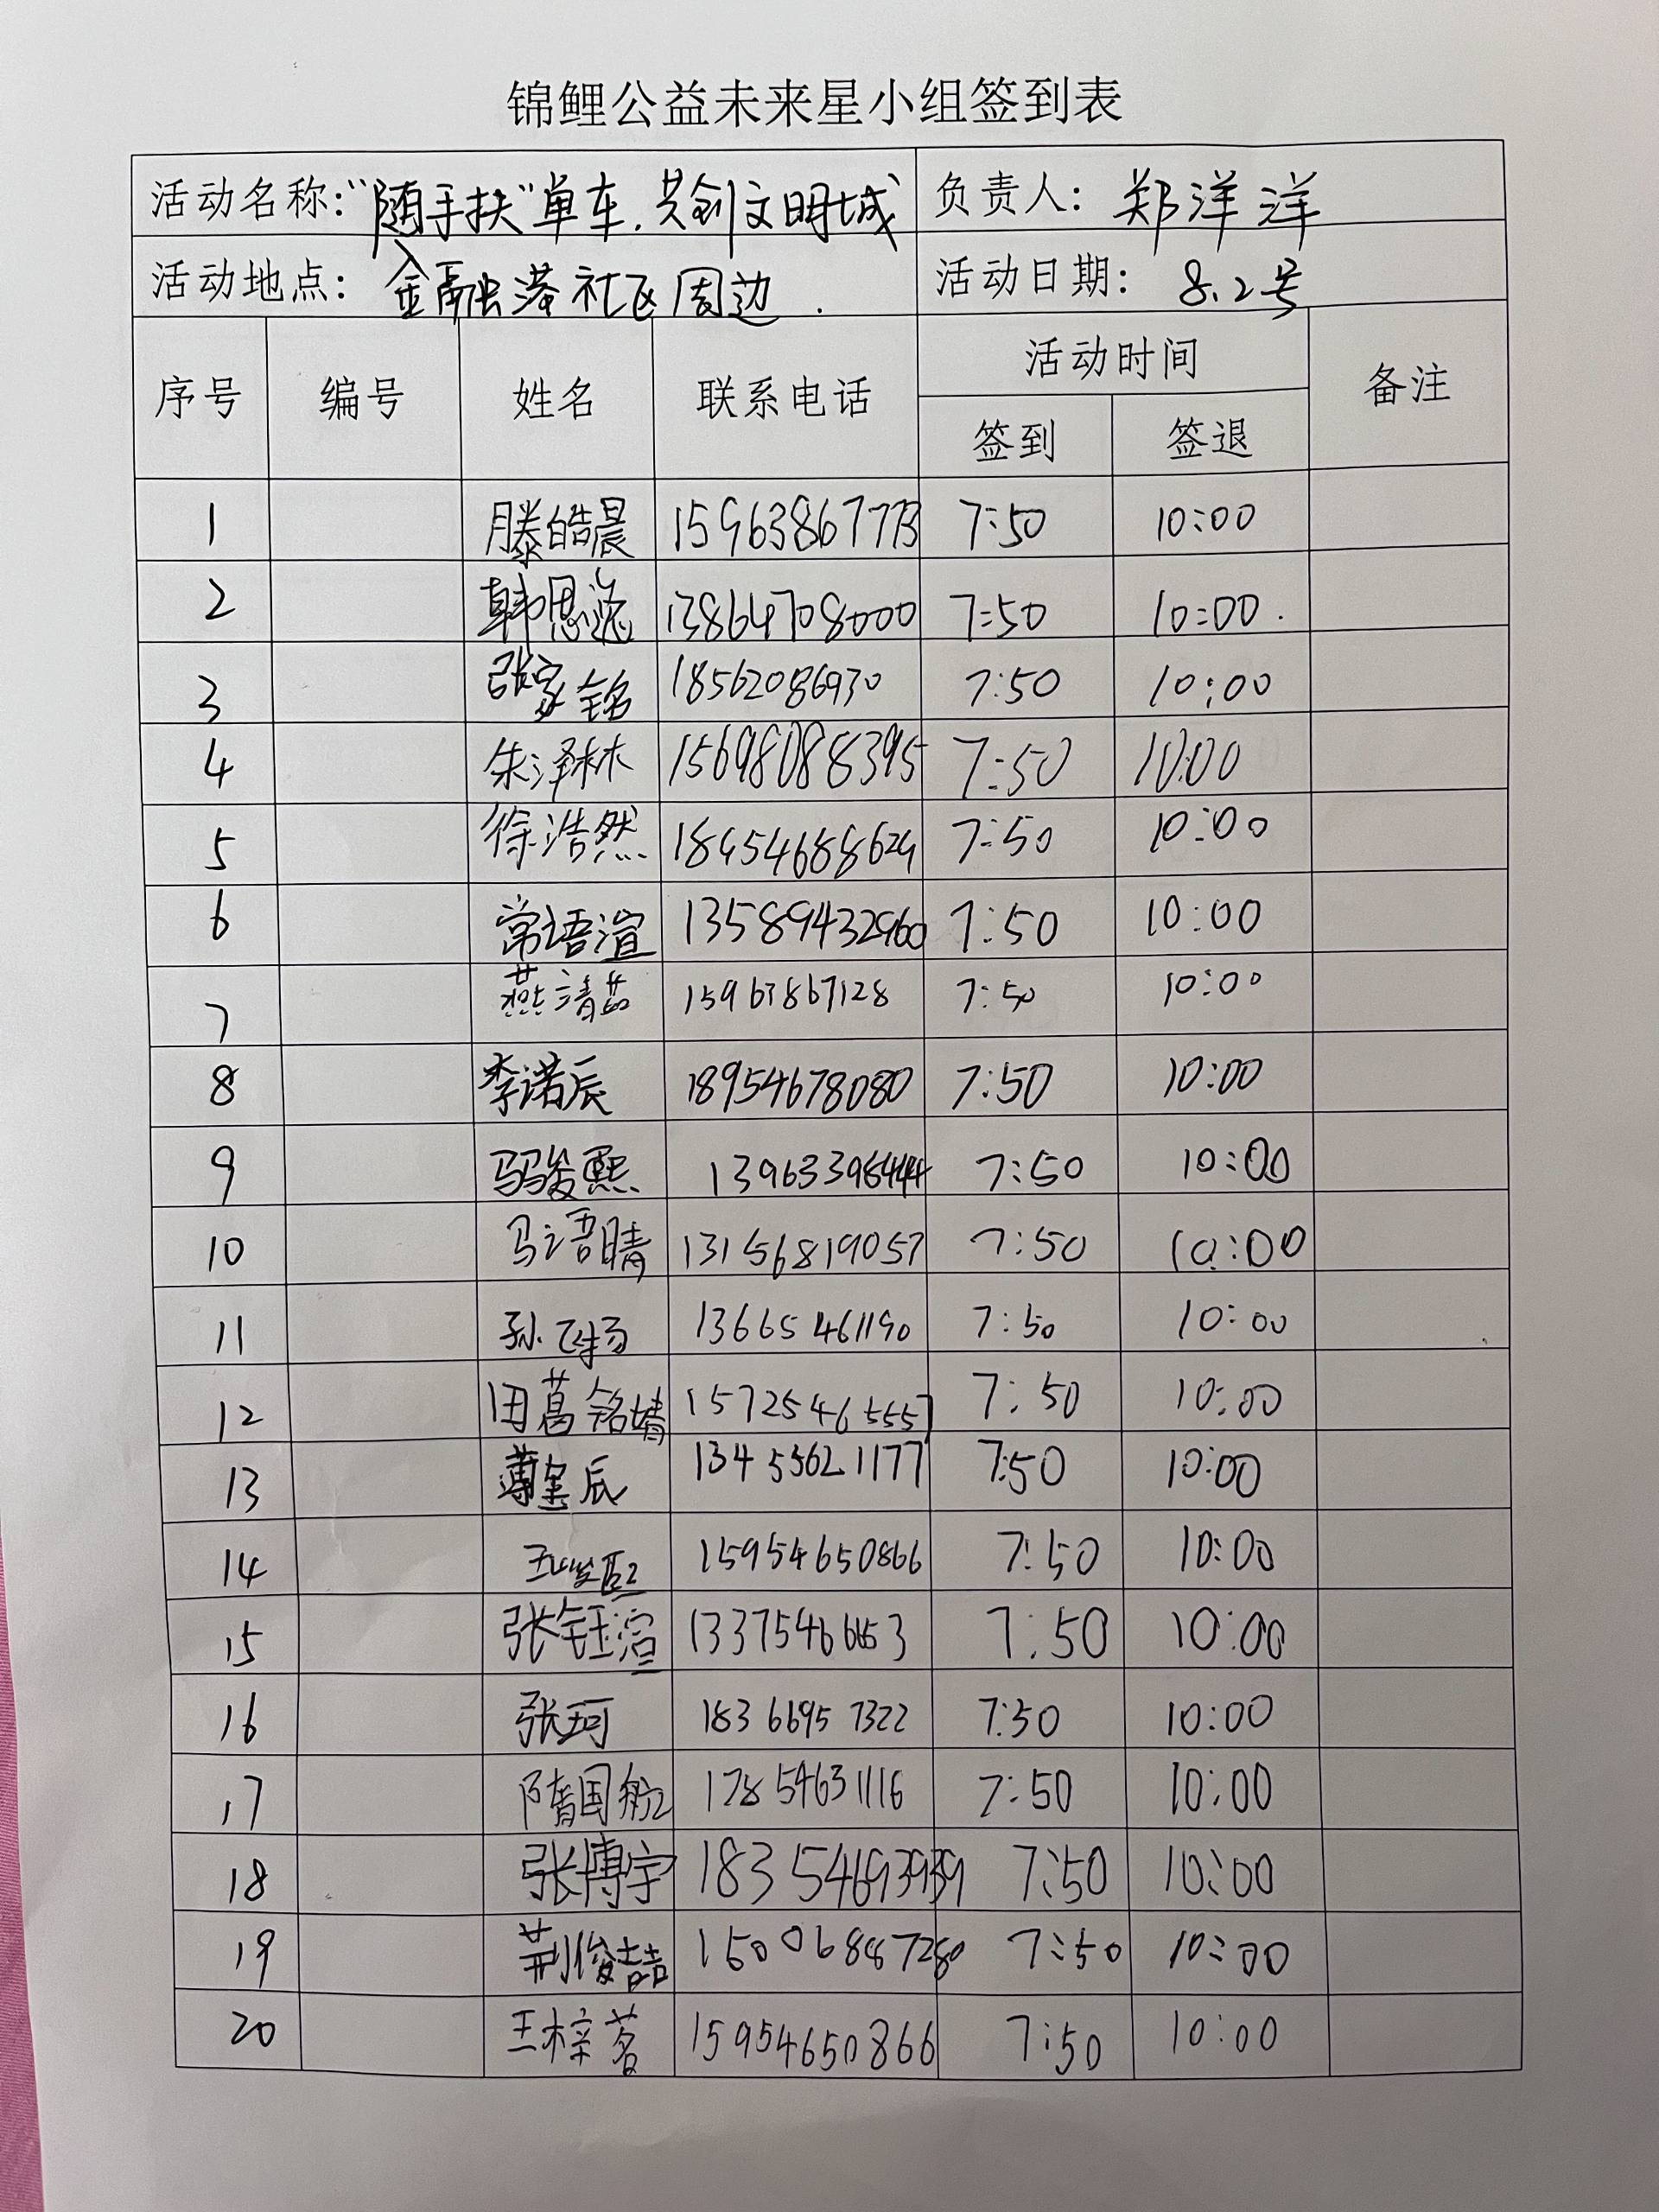 锦鲤公益未来星小组签到表
活动名称：“随手扶”单车，共创文明城 负责人：郑洋洋
活动地点：金融港社区周边． 活动日期：8.2号
序号 编号 姓名 联系电话 活动时间 备注
签到 签退
1 滕皓晨 15963867773 7:50 10:00
2 韩思逸 13864708000 7:50 10:00.
3 张家铭 18562086930 7:50 10:00
4 朱泽林 15698088395 7:50 10:00
5 徐浩然 18954688629 7:50 10:00
6 常语渲 13589432960 7:50 10:00
7 燕清茹 15963867128 7:50 10:00
8 李诺辰 18954678080 7:50 10:00
9 马骏熙 13963398444 7:50 10:00
10 马语晴 13156819057 7:50 10:00
11 孙飞扬 13665461190 7:50 10:00
12 田葛铭婧 15725465557 7:50 10:00
13 辰 13455621177 7:50 10:00
14 15954650866 7:50 10:00
15 张钰渲 7:50 10:00
16 张珂 18366957322 7:50 10:00
17 隋国航 17854631116 7:50 10:00
18 张博宇 18354693939 7:50 10:00
19 荆俊喆 15006887280 7:50 10:00
20 王梓茗 15954650866 7:50 10:00